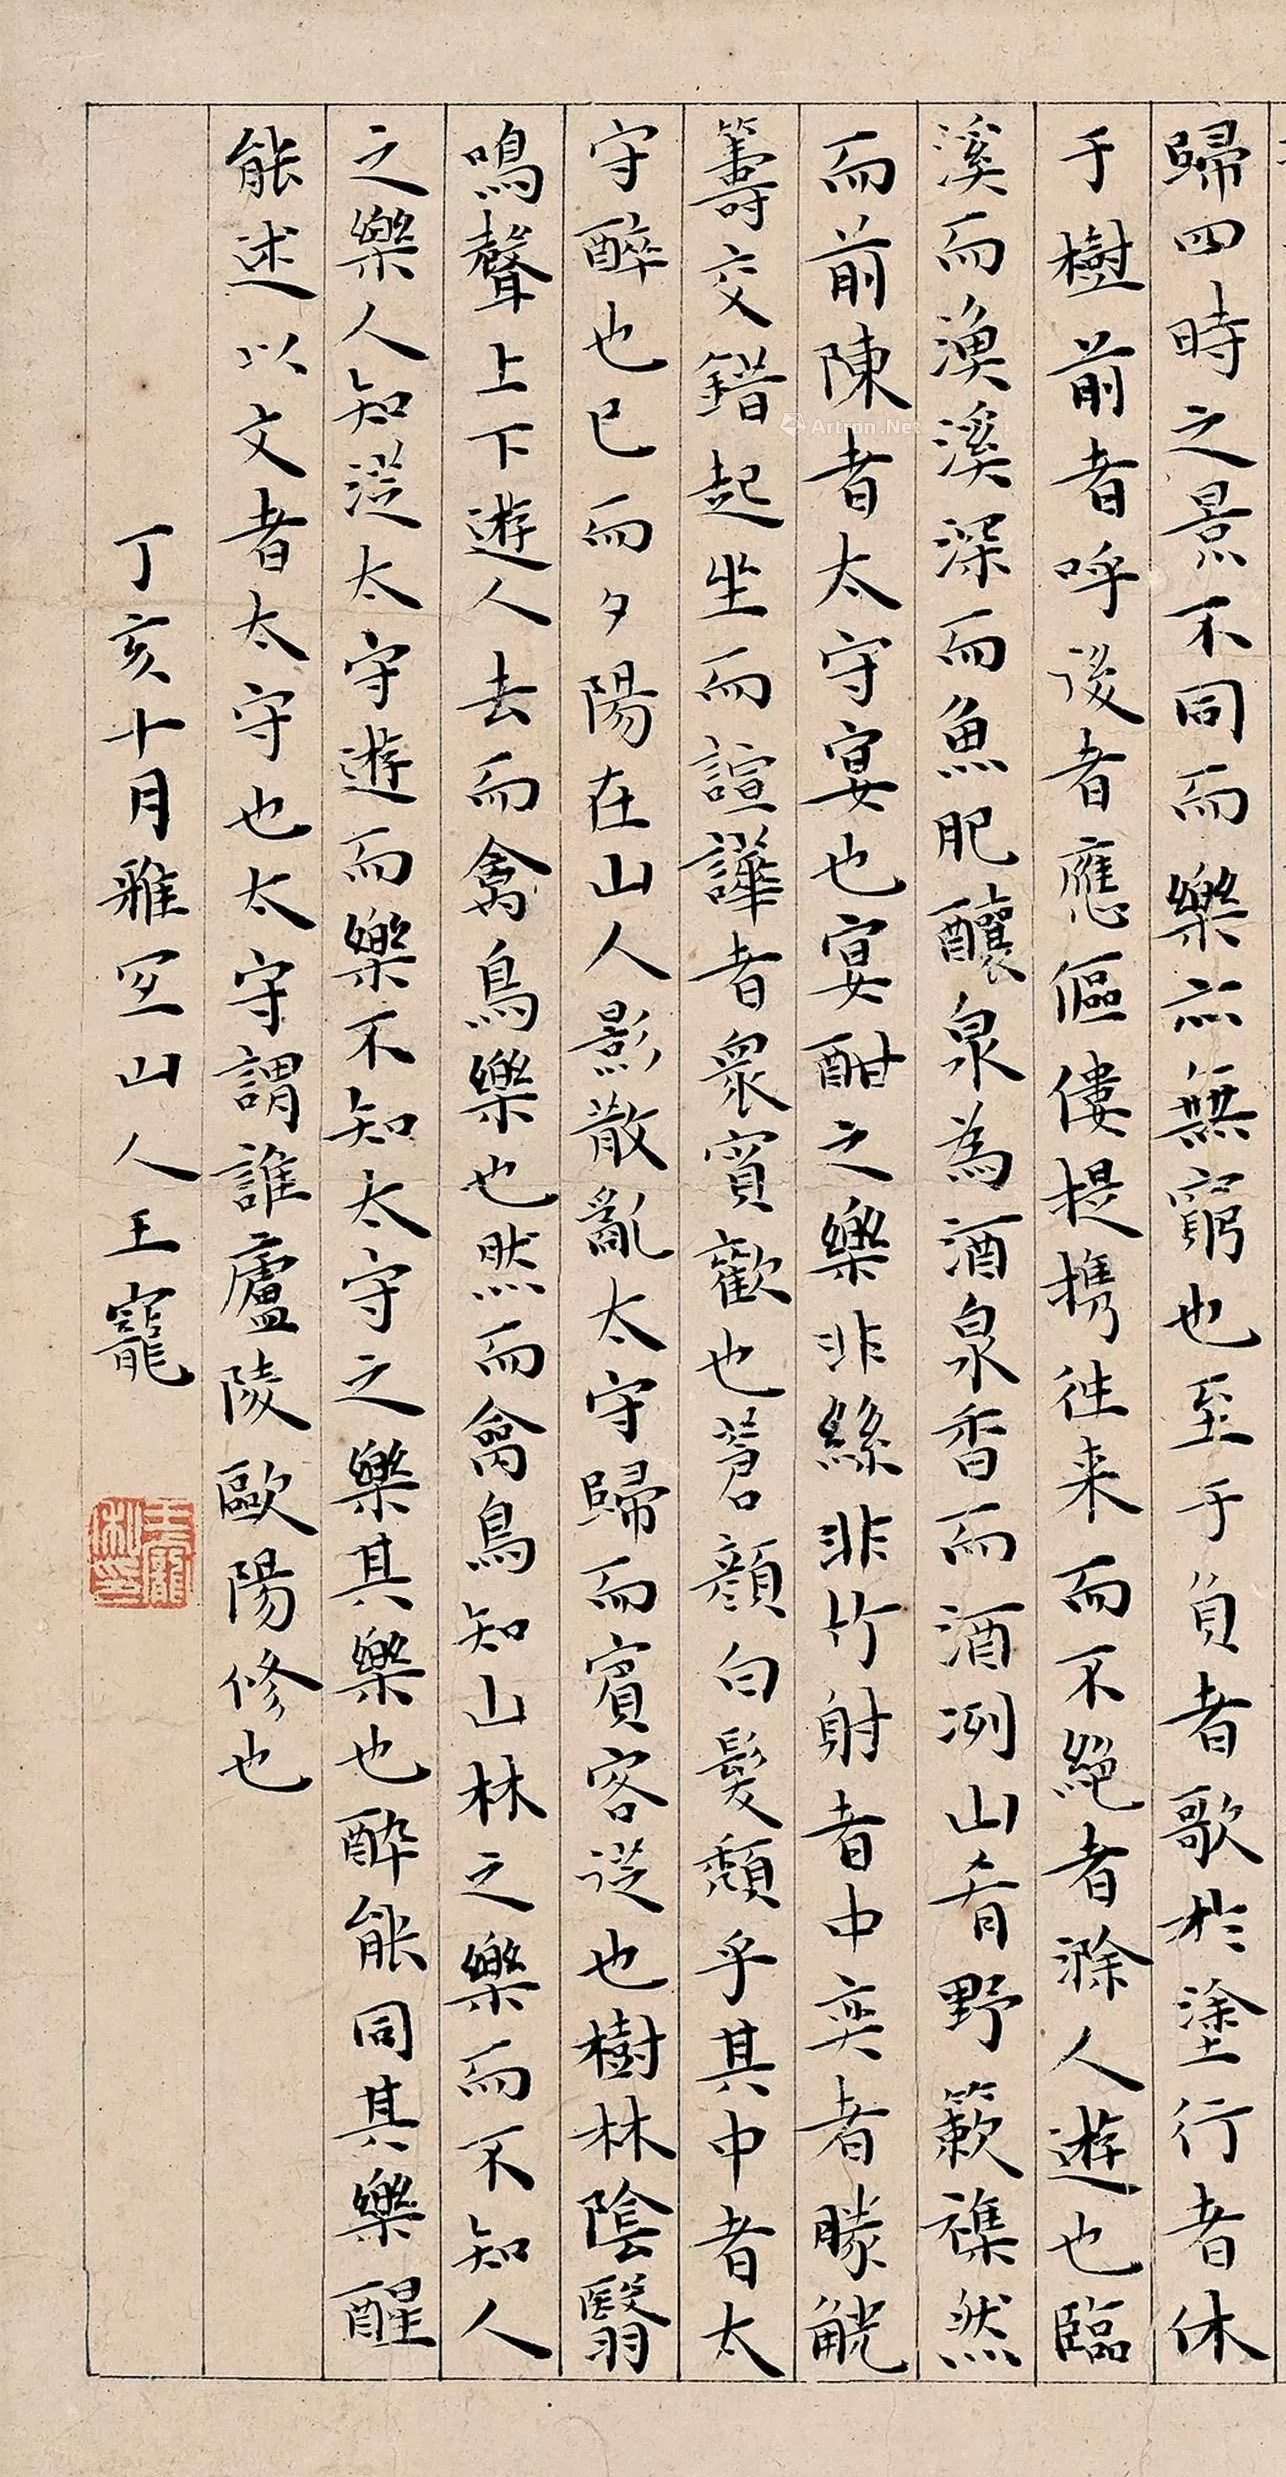 歸四時之景不同而樂亦無窮也至于負者歌於塗行者休
于樹前者呼後者應傴僂提携往来而不絕者滁人遊也臨
溪而漁溪深而魚肥釀泉為酒泉香而酒洌山肴野簌襍然
而前陳者太守宴也宴酣之樂非絲非竹射者中奕者勝觥
籌交錯起坐而諠譁者衆賓歡也蒼顏白髮頹乎其中者太
守醉也已而夕陽在山人影散亂太守歸而賓客從也樹林陰翳
鳴聲上下遊人去而禽鳥樂也然而禽鳥知山林之樂而不知人
之樂人知從太守遊而樂不知太守之樂其樂也醉能同其樂醒
能述以文者太守也太守謂誰廬陵歐陽修也
丁亥十月雅宜山人王寵
王寵私印
Artron.Net